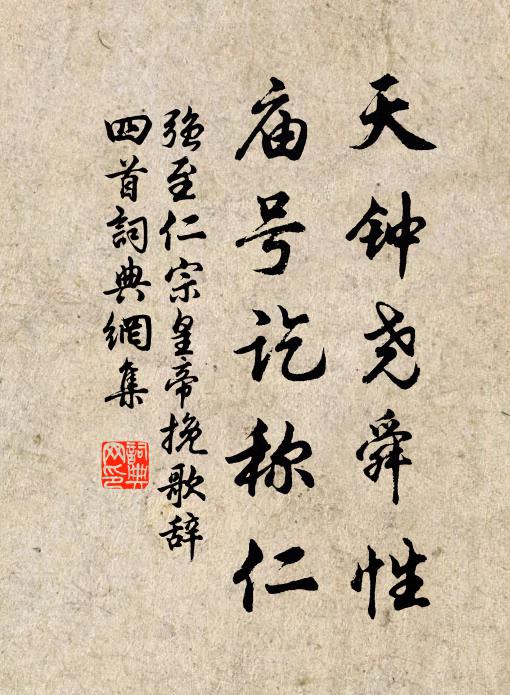 天钟尧舜性
庙号讫称仁
强至仁宗皇帝挽歌辞
四首詞典網集
詞典网印